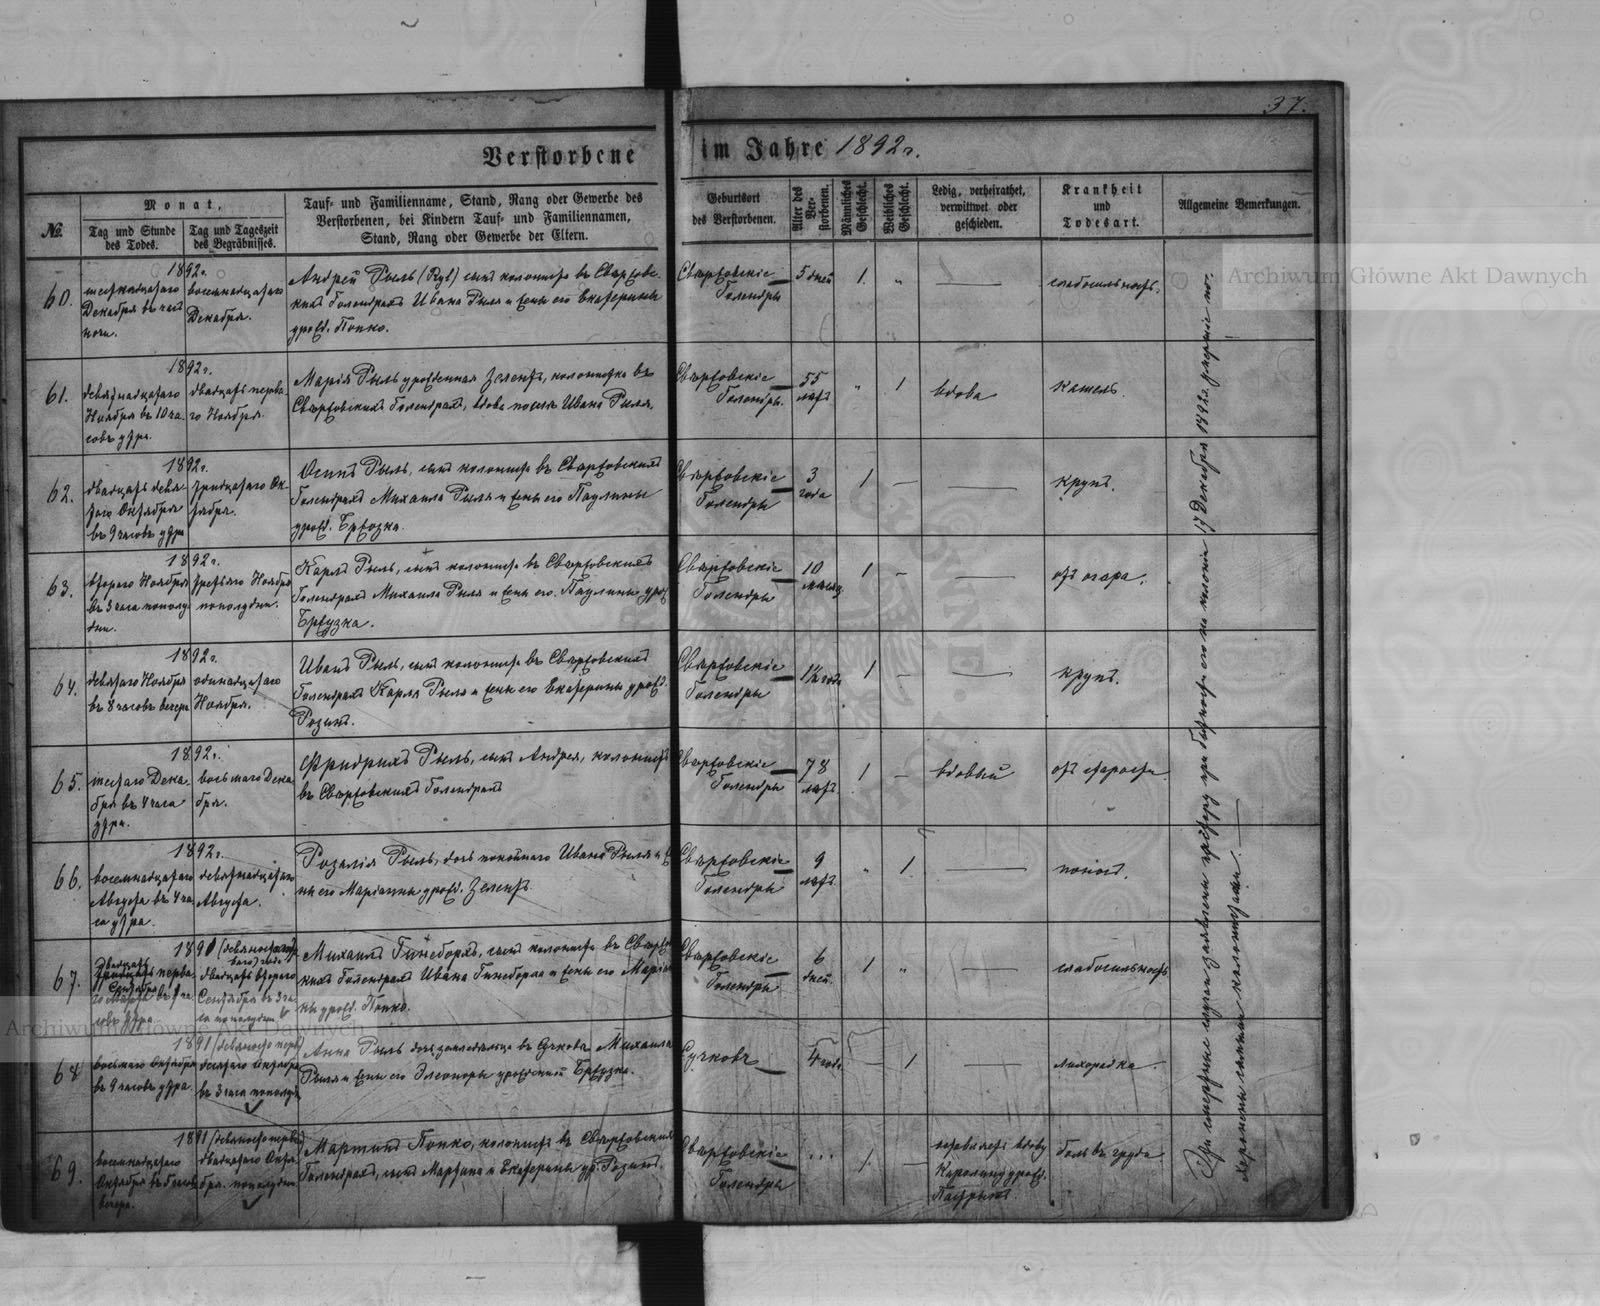 37.
Verstorbene im Jahre 1892 г.
№.
Monat,
Tag und Stunde des Todes.
Tag und Tageszeit des Begräbnisses.
Tauf- und Familienname, Stand, Rang oder Gewerbe des
Verstorbenen, bei Kindern Tauf- und Familiennamen,
Stand, Rang oder Gewerbe der Eltern.
Geburtsort
des Verstorbenen.
Alter des Ver-
storbenen.
Männliches
Geschlecht.
Weibliches
Geschlecht.
Ledig, verheirathet,
verwittwet oder
geschieden.
Krankheit
und
Todesart.
Allgemeine Bemerkungen.
60.
1892 г.
шестнадцатаго
Декабря въ час
ночи.
восемнадцатаго
Декабря.
Андрей Рыль (Ryl) сынъ колониста въ Свѣржовс-
кихъ Голендрахъ Ивана Рыля и жены его Екатерины
урожд. Попко.
Свѣржовскіе
Голендры
5 дней
1.
слабосильность.
61.
1892 г.
девятнадцатаго
Ноября въ 10 ча-
совъ утра.
двадцать перва-
го Ноября.
Марія Рыль урожденная Зеленть, колонистка въ
Свѣржовскихъ Голендрахъ, вдова послѣ Ивана Рыля.
Свѣржовскіе
Голендры.
55
лѣтъ
1
вдова
кашель.
62.
1892 г.
двадцать девя-
таго Октября
въ 9 часовъ утра
тридцатаго Ок-
тября.
Осипъ Рыль, сынъ колониста въ Свѣржовскихъ
Голендрахъ Михаила Рыля и жены его Паулины
урожд. Бржозка.
Свѣржовскіе
Голендры
3
года
1
крупъ.
63.
1892 г.
втораго Ноября
въ 3 часа пополу-
дни.
третьяго Ноября
пополудни.
Карлъ Рыль, сынъ колониста въ Свѣржовскихъ
Голендрахъ Михаила Рыля и жены его Паулины урожд
Бржузка.
Свѣржовскіе
Голендры
10
мѣсяц.
1
отъ огара.
64.
1892 г.
девятаго Ноября
въ 8 часовъ вечера
одинадцатаго
Ноября.
Иванъ Рыль, сынъ колониста въ Свѣржовскихъ
Голендрахъ Карла Рыля и жены его Екатерины урожд.
Розинъ.
Свѣржовскіе
Голендры
1½ года
1
крупъ.
65.
1892 г.
шестаго Дека-
бря въ 4 часа
утра.
восьмаго Дека-
бря.
Фридрихъ Рыль, сынъ Андрея, колонистъ
въ Свѣржовскихъ Голендрахъ
Свѣржовскіе
Голендры
78
лѣтъ
1
вдовый
отъ старости.
66.
1892 г.
восемнадцатаго
Августа въ 4 ча-
са утра.
девятнадцатаго
Августа.
Розалія Рыль, дочь покойнаго Ивана Рыля и же-
ны его Маріанны урожд. Зелентъ.
Свѣржовскіе
Голендры
9
лѣтъ
1.
поносъ.
67.
двадцать
перва-
Сентября
совъ утра
двадцать втораго
Сентября въ 3 ча-
са пополудни
Михаилъ Гинсборхъ, сынъ колониста въ Свѣржовс-
кихъ Голендрахъ Ивана Гинсборха и жены его Маріан-
ны урожд. Попко.
Свѣржовскіе
Голендры
6
дней.
1
слабосильность
68
1891 (девяносто перв)
восьмаго Октября
въ 9 часовъ утра.
десятаго Октября
въ 3 часа пополудн
Анна Рыль дочь земледѣльца въ Сучкова Михаила
Рыля и жены его Элеоноры урожденной Бржузка.
Сучковъ
4 года
1
лихорадка.
69.
1891 (девяносто перв)
восемнадцатаго
Октября въ 6 часов
вечера.
двадцатаго Октя-
бря. пополудни
Мартинъ Попко, колонистъ въ Свѣржовскихъ
Голендрахъ, сынъ Мартина и Екатерины ур. Розинъ.
Свѣржовскіе
Голендры
...
1.
оставилъ вдову
Каролину урожд.
боль въ груди
17 Декабря 1892 г.
Archiwum Główne Akt Dawnych
Archiwum Główne Akt Dawnych